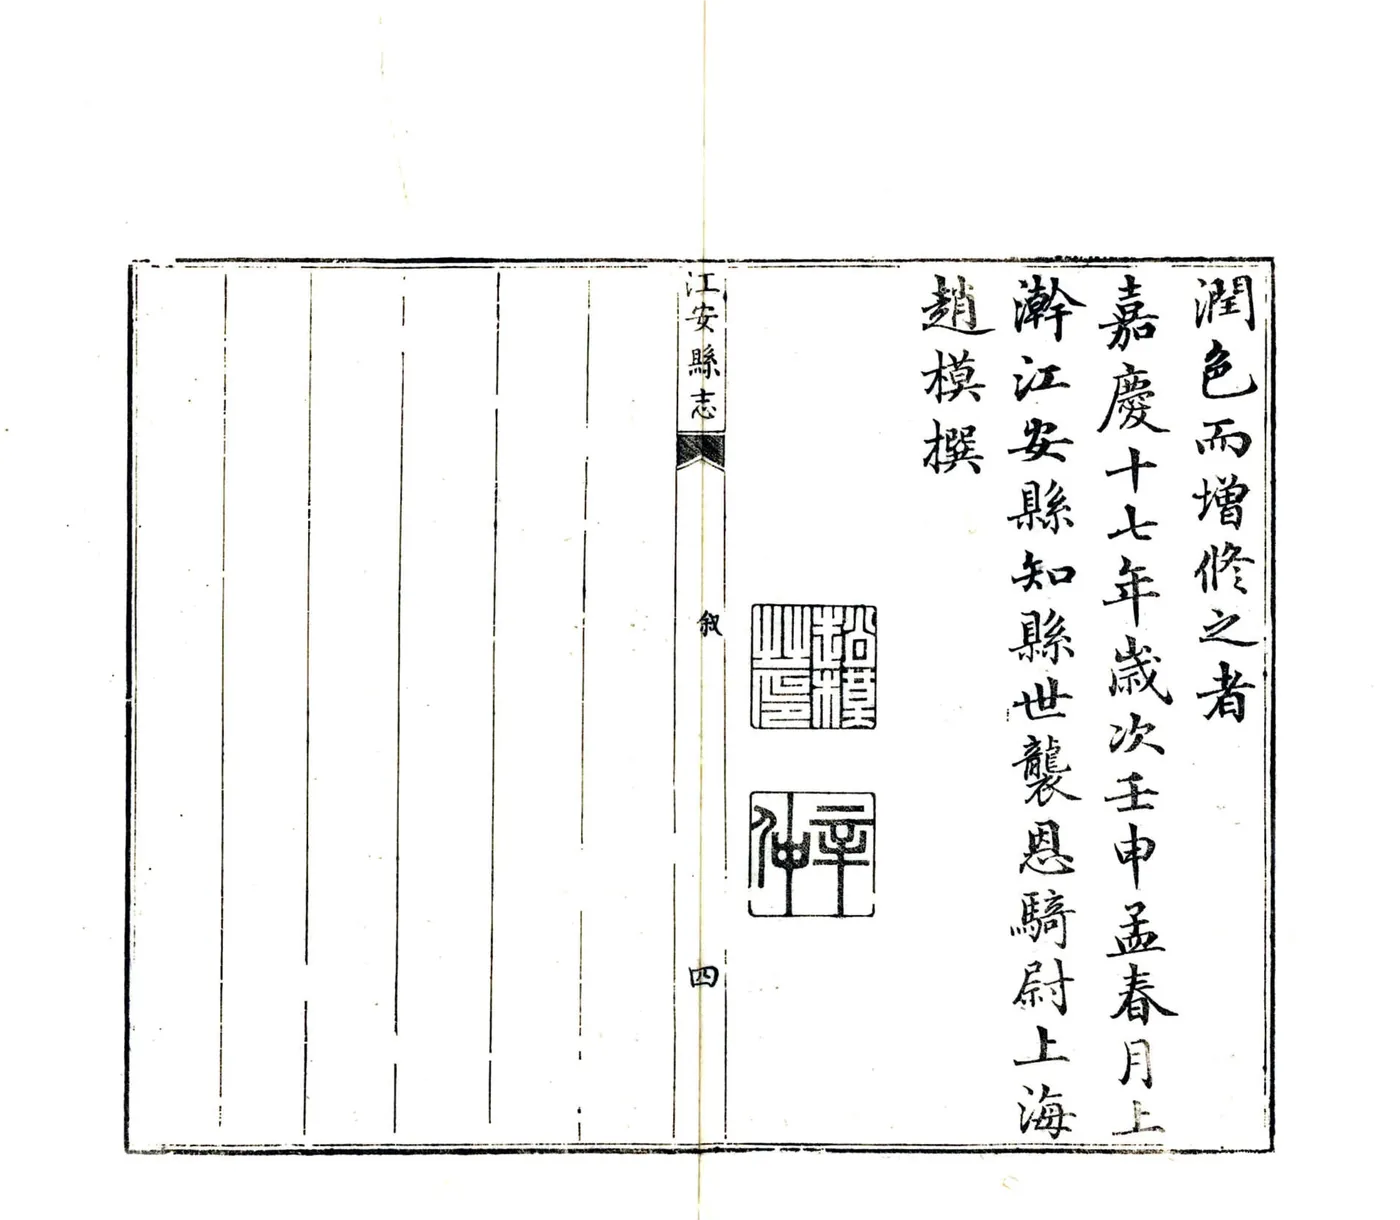 潤色而增修之者
嘉慶十七年歲次壬申孟春月上
澣江安縣知縣世襲恩騎尉上海
趙模撰
江安縣志
叙
四